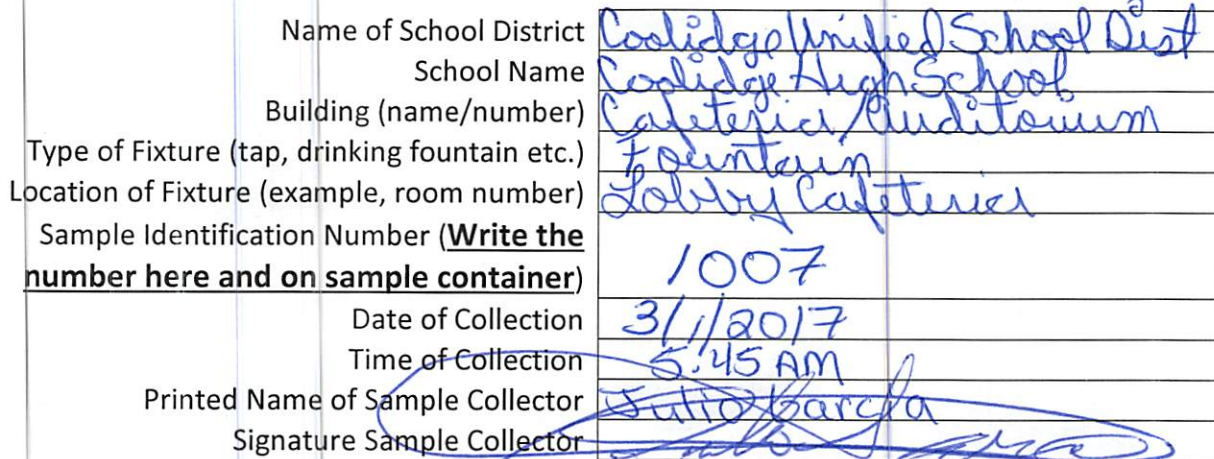 Name of School District Coolidge Unified School Dist
School Name Coolidge High School
Building (name/number) Cafeteria/Auditorium
Type of Fixture (tap, drinking fountain etc.) Fountain
Location of Fixture (example, room number) Lobby Cafeteria
Sample Identification Number (Write the
number here and on sample container) 1007
Date of Collection 3/1/2017
Time of Collection 5:45 AM
Printed Name of Sample Collector Julio Garcia
Signature Sample Collector